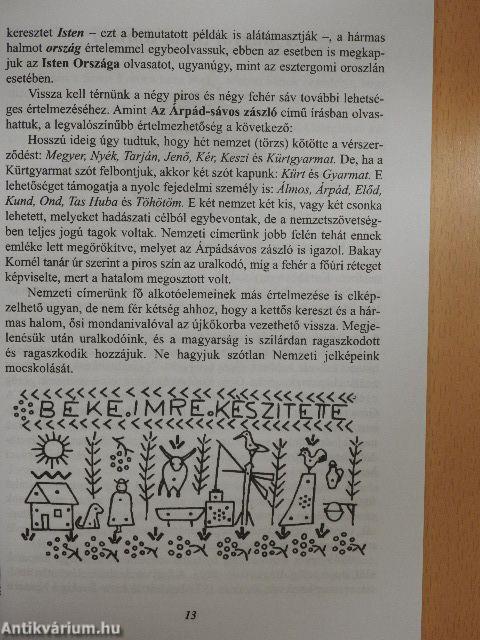 keresztet Isten – ezt a bemutatott példák is alátámasztják –, a hármas
halmot ország értelemmel egybeolvassuk, ebben az esetben is megkap-
juk az Isten Országa olvasatot, ugyanúgy, mint az esztergomi oroszlán
esetében.
Vissza kell térnünk a négy piros és négy fehér sáv további lehetsé-
ges értelmezéséhez. Amint Az Árpád-sávos zászló című írásban olvas-
hattuk, a legvalószínűbb értelmezhetőség a következő:
Hosszú ideig úgy tudtuk, hogy hét nemzet (törzs) kötötte a vérszer-
ződést: Megyer, Nyék, Tarján, Jenő, Kér, Keszi és Kürtgyarmat. De, ha a
Kürtgyarmat szót felbontjuk, akkor két szót kapunk: Kürt és Gyarmat. E
lehetőséget támogatja a nyolc fejedelmi személy is: Álmos, Árpád, Előd,
Kund, Ond, Tas Huba és Töhötöm. E két nemzet két kis, vagy két csonka
lehetett, melyeket hadászati célból egybevontak, de a nemzetszövetség-
ben teljes jogú tagok voltak. Nemzeti címerünk jobb felén tehát ennek
emléke lett megörökítve, melyet az Árpádsávos zászló is igazol. Bakay
Kornél tanár úr szerint a piros szín az uralkodó, míg a fehér a főúri réteget
képviselte, mert a hatalom megosztott volt.
Nemzeti címerünk fő alkotóelemeinek más értelmezése is elkép-
zelhető ugyan, de nem fér kétség ahhoz, hogy a kettős kereszt és a hár-
mas halom, ősi mondanivalóval az újkőkorba vezethető vissza. Megje-
lenésük után uralkodóink, és a magyarság is szilárdan ragaszkodott
és ragaszkodik hozzájuk. Ne hagyjuk szótlan Nemzeti jelképeink
mocskolását.
BÉKE.IMRE.KÉSZÍTETTE
13
Antikvárium.hu